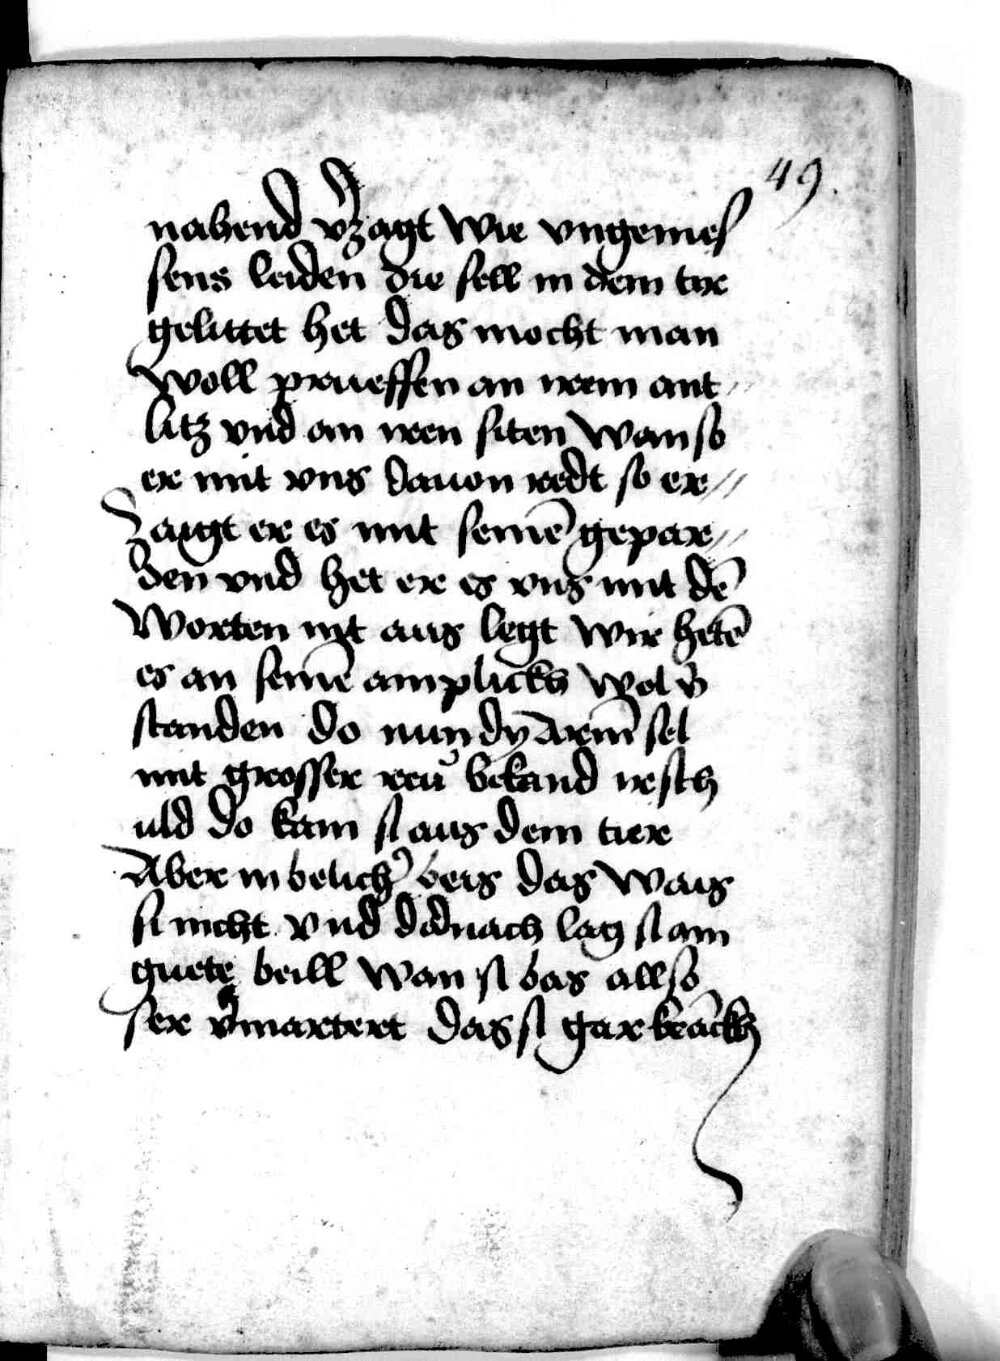 49.
nahend v̉zagt wie vngemes
sens leiden die sell in dem tir
gelittet het das mocht man
woll prueffen an irem ant〃
litz vnd an iren siten wan so
er mit vns dauon redt so er〃
zaigt er es mit seinē gepar〃
den vnd het er es vns mit dē
worten nit aus legt wir hetē
es an seinē anplickh wol v̉
standen do nun dy Arm̄ sel
mit grosser reu bekand ir sch
uld do kam si aus dem tier
Aber in belich̉ beis das wais
si nicht vnd darnach lag si ain
guete beill wan si bas allso
ser v̉martert das si gar krāckh